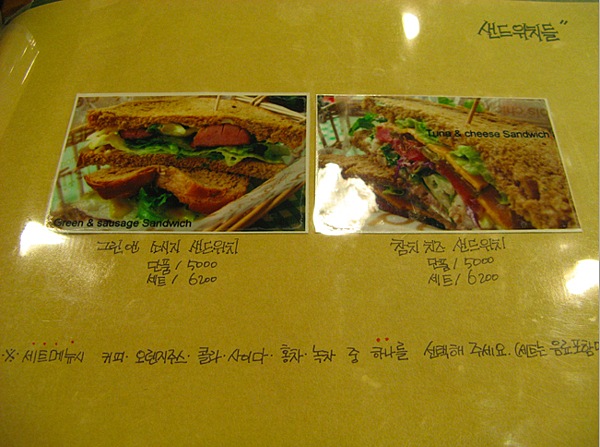 샌드위치들"
Green & sausage Sandwich
Tuna & cheese Sandwich
그린앤 소세지 샌드위치
단품 / 5000
세트 / 6200
참치 치즈 샌드위치
단품 / 5000
세트 / 6200
※ 세트메뉴시 커피·오렌지쥬스·콜라·사이다·홍차·녹차 중 하나를 선택해 주세요. (세트는 음료포함